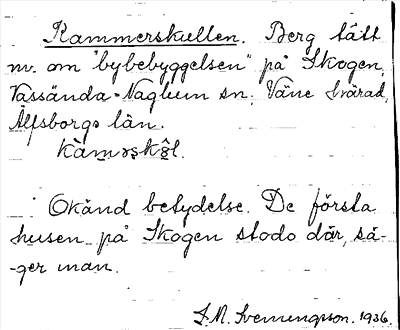 Kammerskullen. Berg tätt
nv. om "bybebyggelsen" på Skogen,
Vassända-Naglum sn; Väne härad,
Älfsborgs län.
Okänd betydelse. De första
husen på Skogen stodo där, sä-
-ger man.
1936.